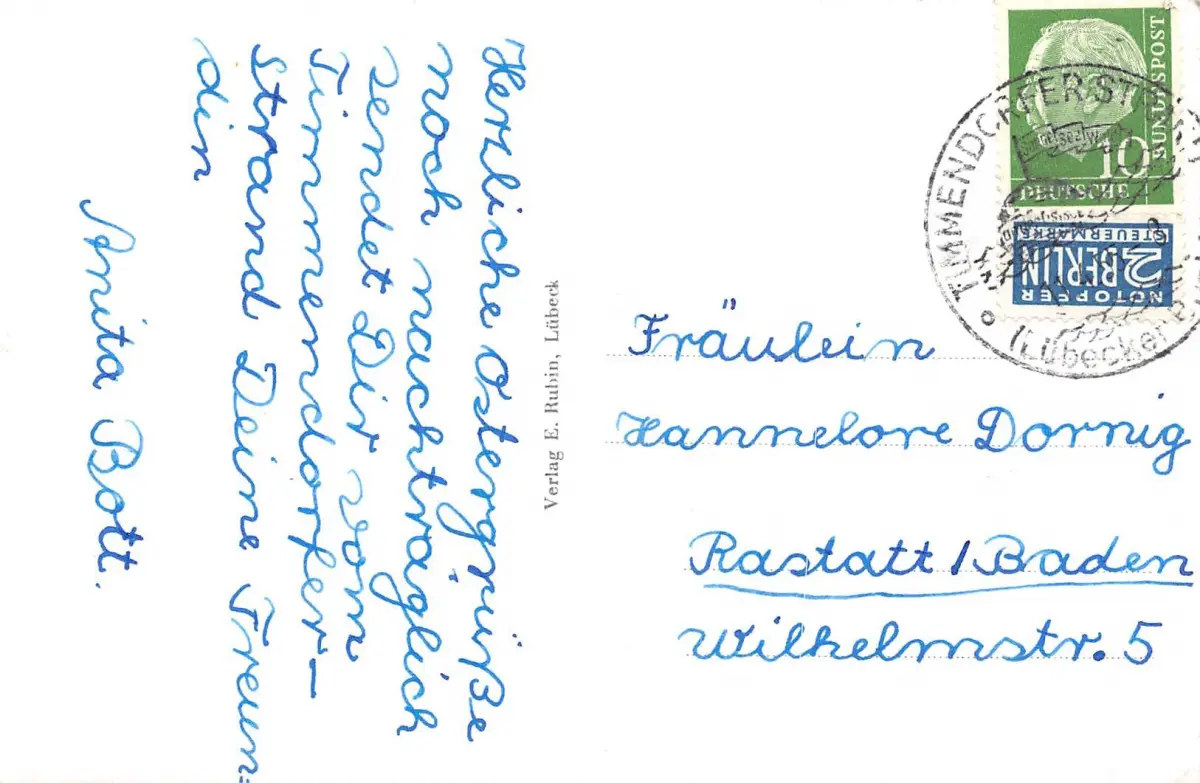 Herzliche Ostergrüße
noch nachträglich
sendet Dir vom
Timmendorfer-
strand Deine Freun=
din
Anita Bott.
Verlag E. Rubin, Lübeck
DEUTSCHE
BUNDESPOST
10
NOTOPFER
2 BERLIN
STEUERMARKE
TIMMENDORFER
(Lübecker
Fräulein
Hannelore Dornig
Rastatt / Baden
Wilhelmstr. 5